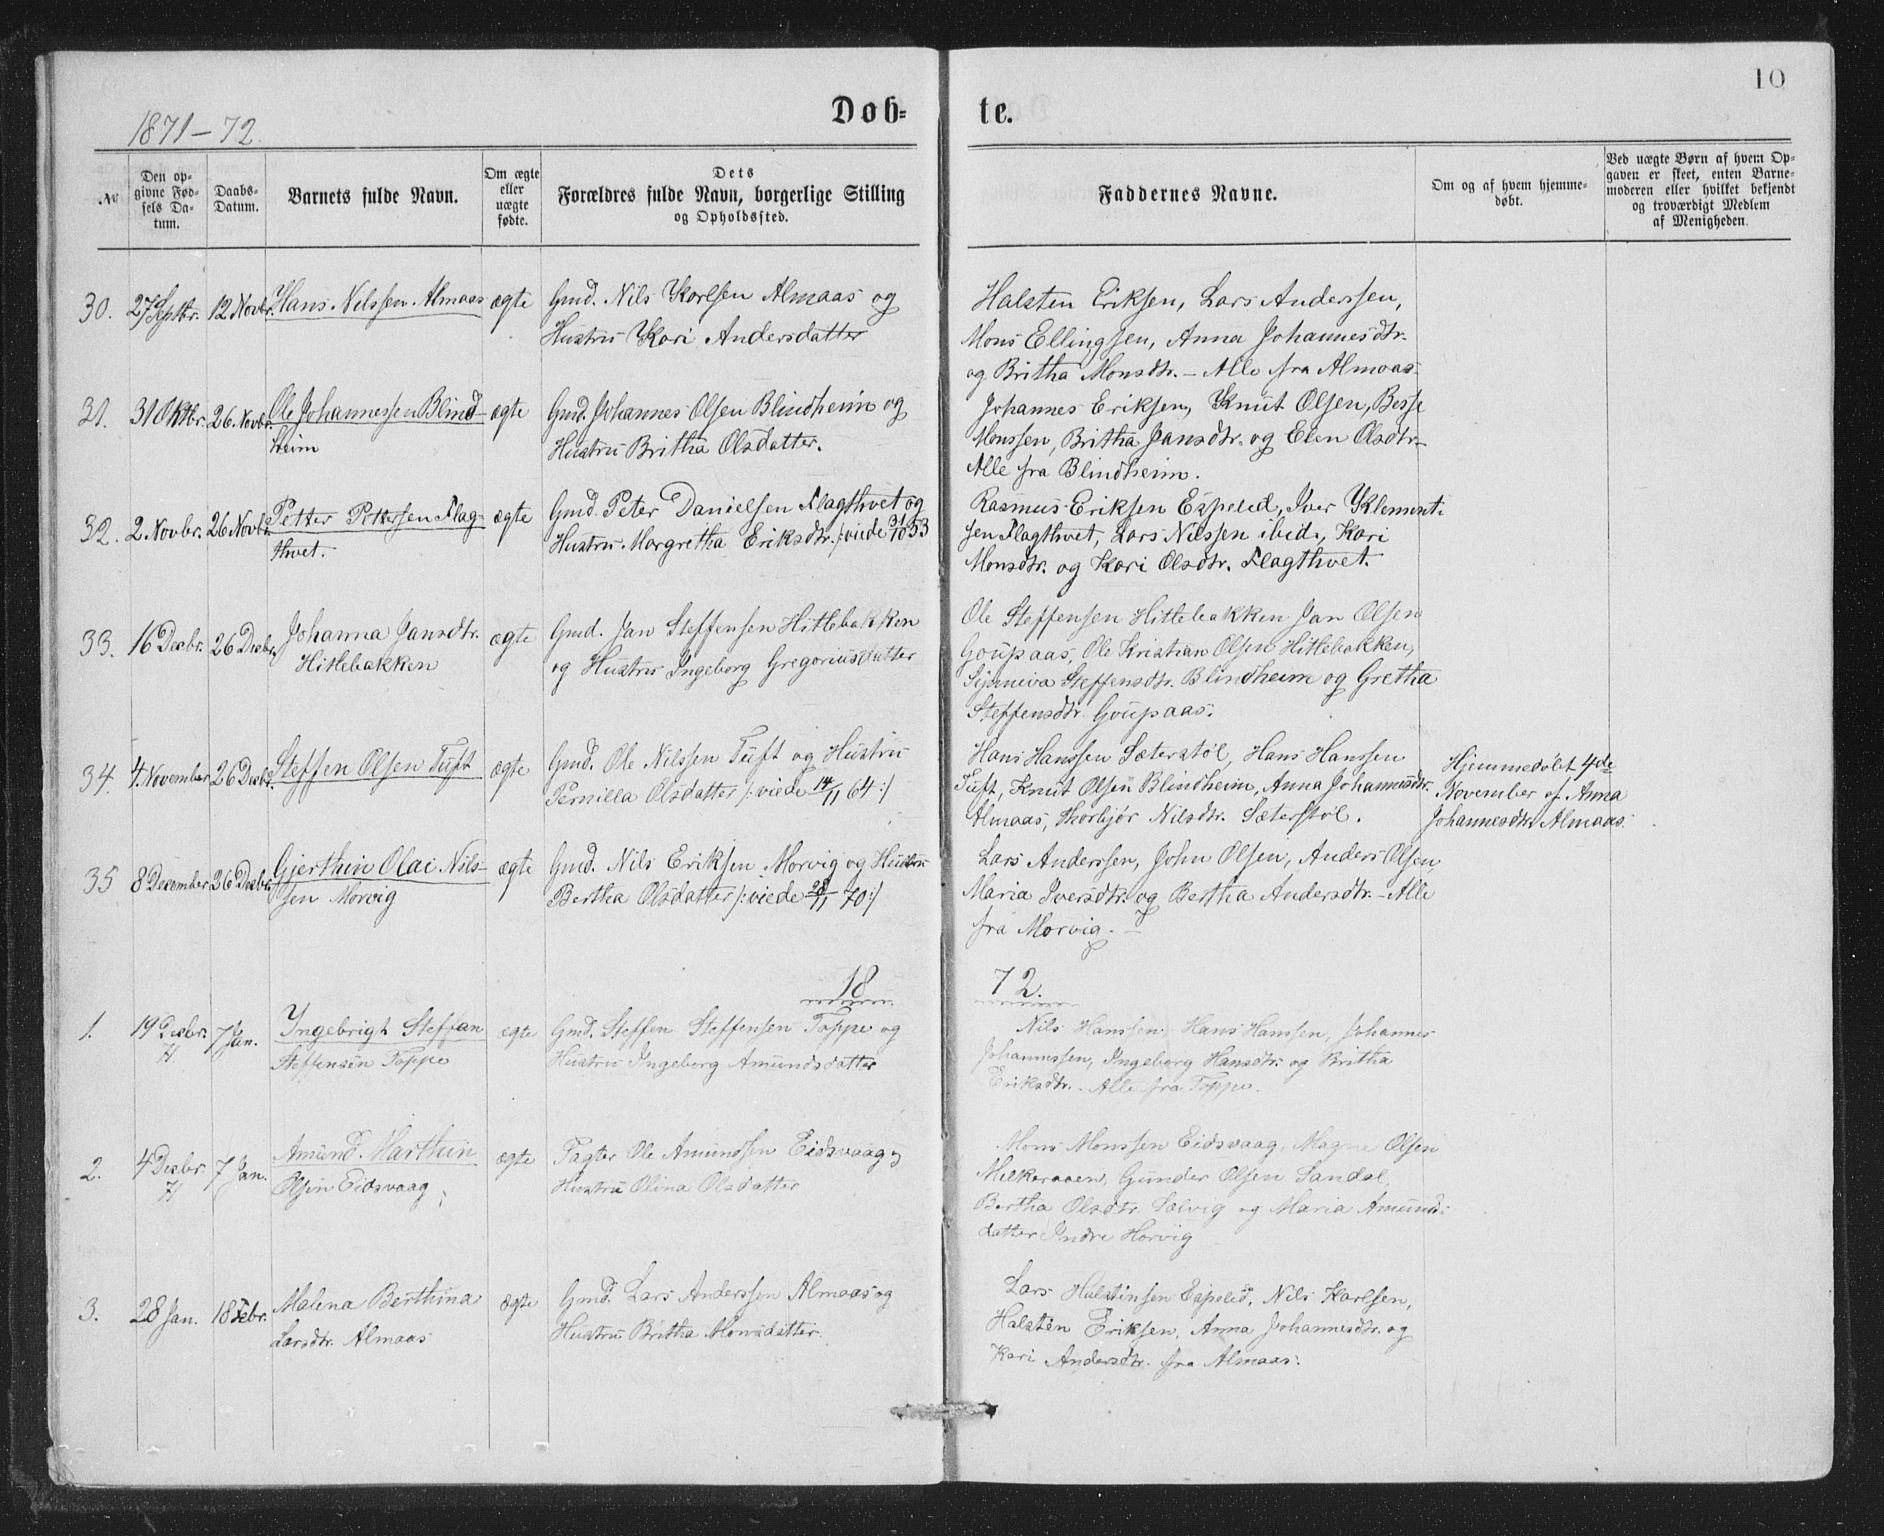 10
1871-72.
Døb-
te.
№
Den op-
givne Fød-
sels Da-
tum.
Daabs-
Datum.
Barnets fulde Navn.
Om ægte
eller
uægte
fødte.
Dets
Forældres fulde Navn, borgerlige Stilling
og Opholdssted.
Faddernes Navne.
Om og af hvem hjemme-
døbt.
Ved uægte Børn af hvem Op-
gaven er skeet, enten Barne-
moderen eller hvilket bekjendt
og troværdigt Medlem
af Menigheden.
30. 27 Septbr. 12 Novbr. Hans Nilssen Almaas ægte
Gmd. Nils Karlsen Almaas og
Hustru Kari Andersdatter
Halsten Eriksen, Lars Anderssen,
Mons Ellingsen, Anna Johannesdtr.
og Britha Monsdtr. - Alle fra Almaas.
31. 31 Oktbr. 26 Novbr. Ole Johannessen Blind-
heim
ægte
Gmd. Johannes Olsen Blindheim og
Hustru Britha Olsdatter.
Johannes Eriksen, Knut Olsen, Besse
Monssen, Britha Jansdtr. og Elen Olsdtr-
Alle fra Blindheim.
32. 2 Novbr. 26 Novbr. Petter Pettersen Flag-
thvet.
ægte
Gmd. Peter Danielsen Flagthvet og
Hustru Margretha Eriksdtr. /: viede 31/10 53
Rasmus Eriksen Espelid, Iver Klement-
sen Flagthvet, Lars Nilssen ibid., Kari
Monsdtr. og Kari Olsdtr. Flagthvet.
33. 16 Decbr. 26 Decbr. Johanna Jansdtr.
Hitlebakken
ægte
Gmd. Jan Steffensen Hitlebakken
og Hustru Ingeborg Gregoriusdatter
Ole Steffensen Hitlebakken Jan Olsen
Goupaas, Ole Kristian Olsen Hitlebakken,
Synneva Steffensdtr. Blindheim og Gretha
Steffensdtr. Goupaas.
34. 4. November 26 Decbr. Steffen Olsen Tuft
ægte
Gmd. Ole Nilssen Tuft og Hustru
Pernilla Olsdatter /: viede 14/11 64 :/
Hans Hanssen Sæterstøl, Hans Hanssen
Tuft, Knut Olsen Blindheim, Anna Johannesdtr.
Almaas, Thorbjør Nilsdtr. Sæterstøl.
Hjemmedøbt 4de
November af Anna
Johannesdtr. Almaas.
35 8 December 26 Decbr. Gjerthin Olai Nils-
sen Morvig
ægte
Gmd. Nils Eriksen Morvig og Hustru
Bertha Olsdatter /: viede 28/11 70 :/
Lars Anderssen, John Olsen, Anders Olsen,
Maria Iversdtr. og Bertha Andersdtr. - Alle
fra Morvig. -
18
72.
1. 19 Decbr. 7 Jan. Ingebrigt Steffan
71
Steffensen Toppe
ægte
Gmd. Steffen Steffensen Toppe og
Hustru Ingeborg Amundsdatter
Nils Hanssen, Hans Hanssen, Johannes
Johannessen, Ingeborg Hansdtr. og Britha
Eriksdtr. - Alle fra Toppe.
2. 4 Decbr. 7 Jan. Amund Marthin
71
Olsen Eidsvaag
ægte
Fagter Ole Amundsen Eidsvaag og
Hustru Olina Olsdatter
Mons Monssen Eidsvaag, Magne Olsen
Melkeraaen, Gunder Olsen Sandal,
Bertha Olsdtr. Selvig og Maria Amunds-
datter Indre Horvig
3. 28 Jan. 18 Febr. Malena Berthina
Larsdtr. Almaas
ægte
Gmd. Lars Anderssen Almaas og
Hustru Britha Monsdatter.
Lars Halstensen Espelid, Nils Karlsen,
Halsten Eriksen, Anna Johannesdtr. og
Kari Andersdtr. fra Almaas.